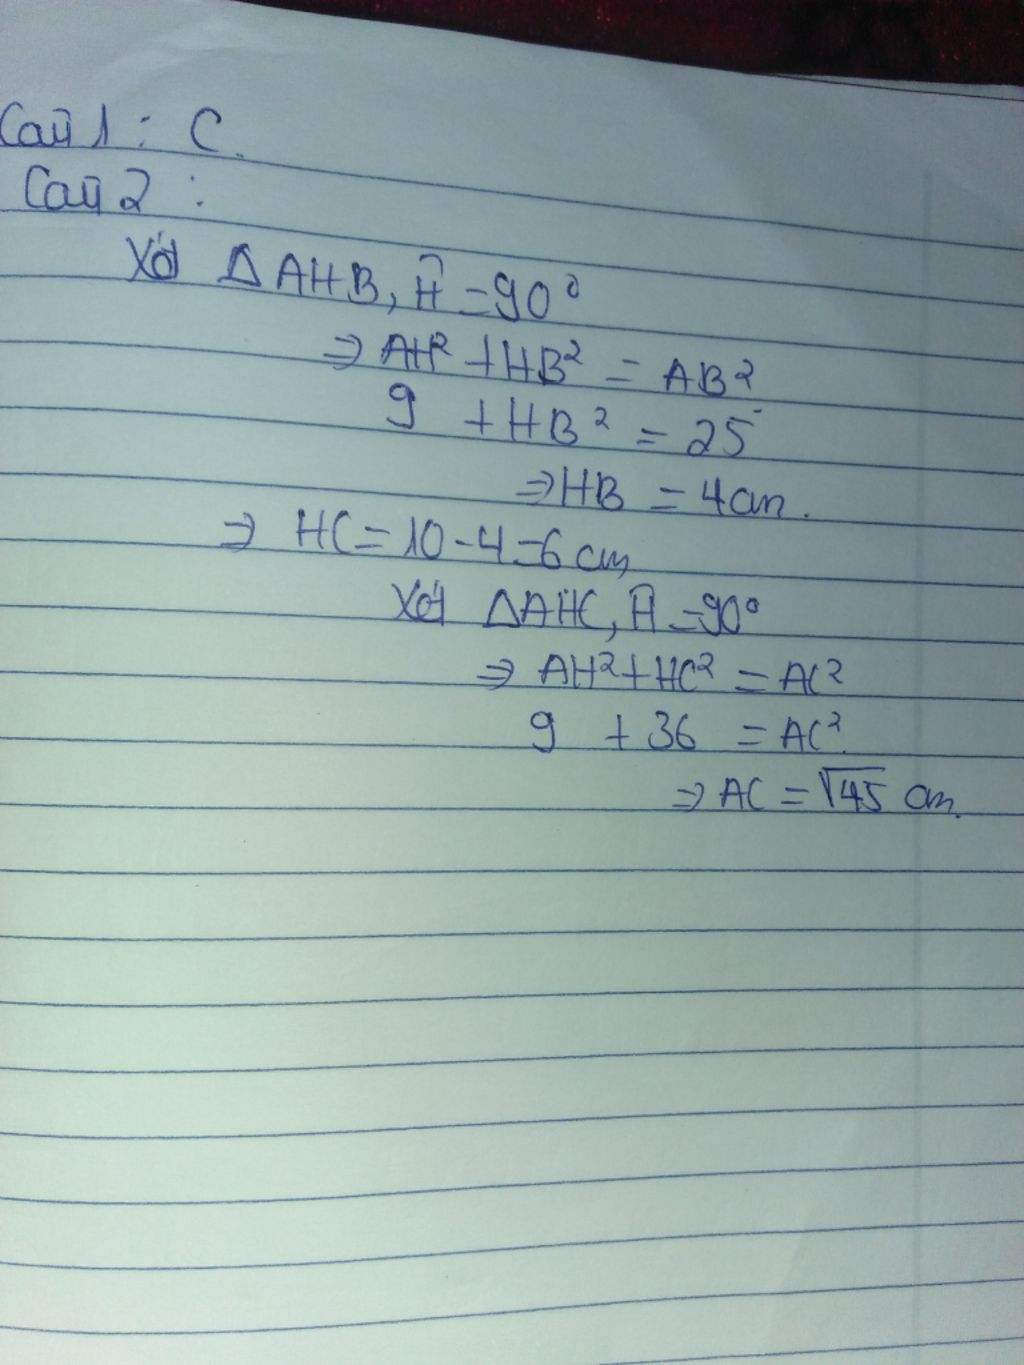 Câu 1 : C.
Câu 2 :
Xét Δ AHB, Ĥ = 90°
⇒ AH² + HB² = AB²
9 + HB² = 25
⇒ HB = 4cm.
⇒ HC = 10 - 4 = 6 cm
Xét ΔAHC, Ĥ = 90°
⇒ AH² + HC² = AC²
9 + 36 = AC².
⇒ AC = √45 cm.